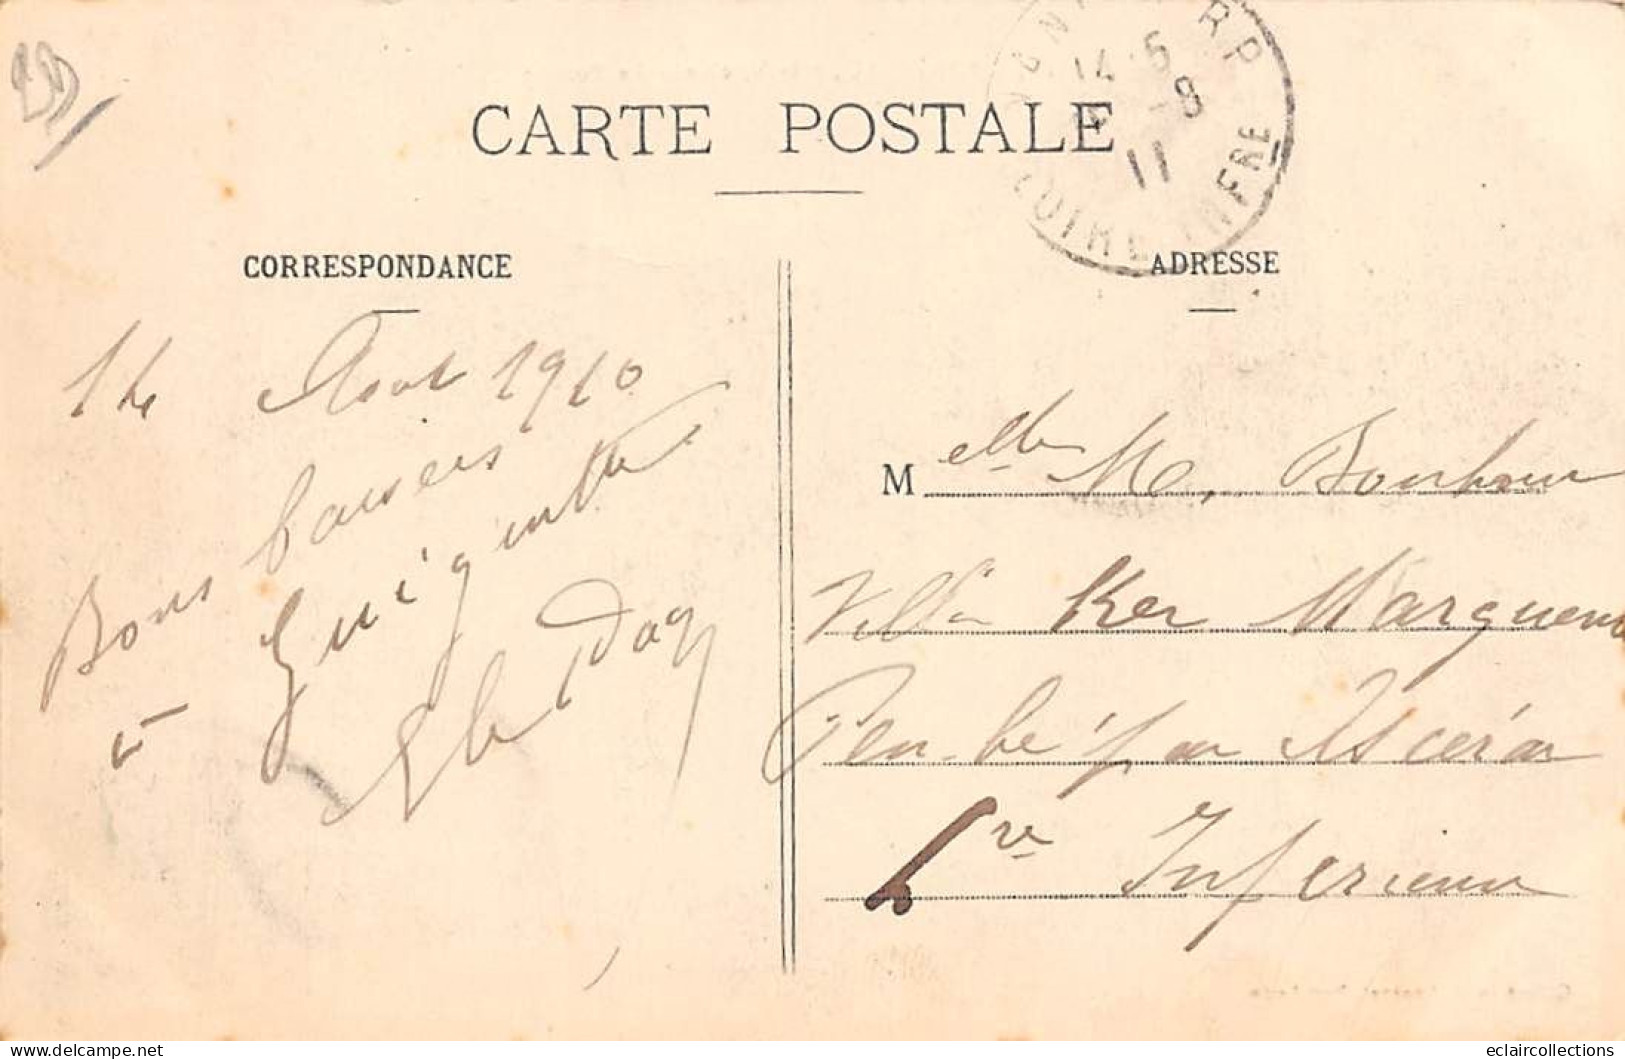 CARTE POSTALE
NANTES RP
14 5
-8
11
LOIRE INFRE
CORRESPONDANCE
ADRESSE
14 Aout 1910
Bons baisers
Guiguitte
Melle M. Bonhour
Villa Ker Marguerite
Pen-bé par Ascérac
Lre Inférieure
delcampe.net
eclaircollections